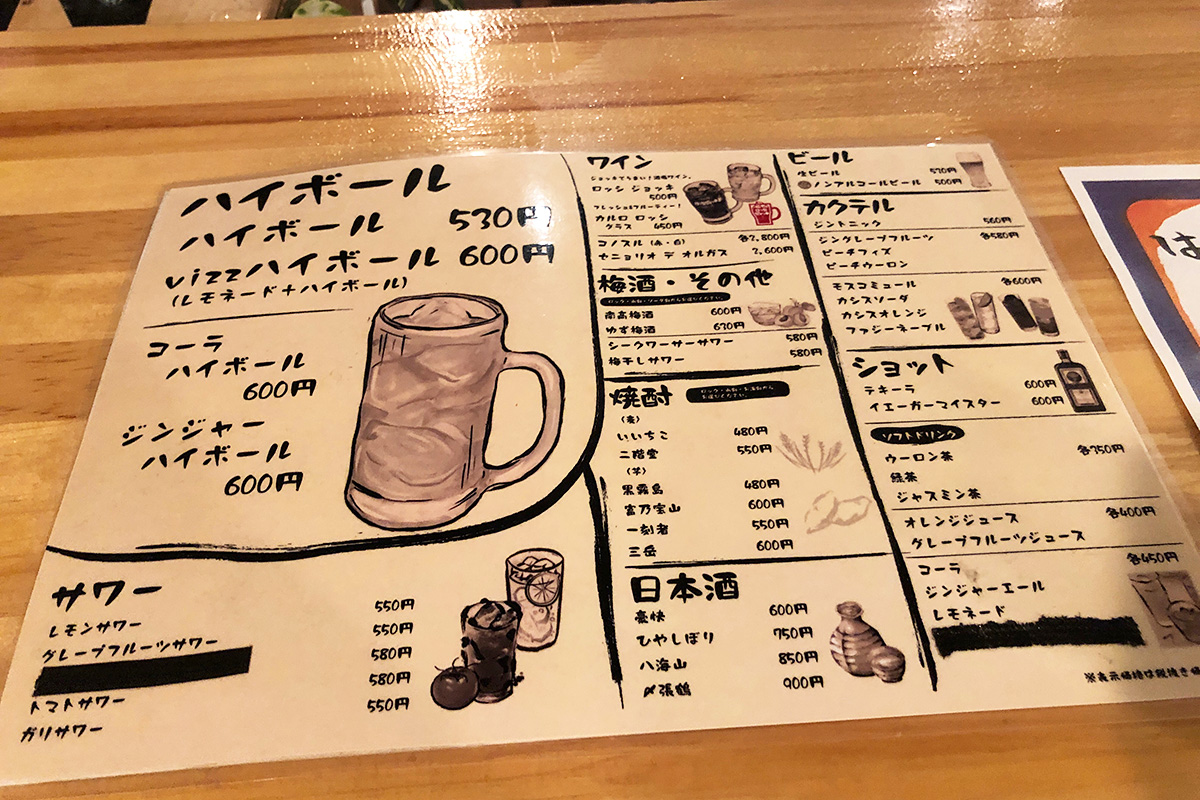 ハイボール
ハイボール 530円
vizzハイボール 600円
(レモネード+ハイボール)
コーラ
ハイボール
600円
ジンジャー
ハイボール
600円
サワー
レモンサワー 550円
グレープフルーツサワー 550円
580円
トマトサワー 580円
ガリサワー 550円
ワイン
ジョッキでうまい!酒場ワイン。
ロッシ ジョッキ
500円
フレッシュ&フルーティー!
カルロ ロッシ
グラス 450円
コノスル(赤・白) 各2,800円
セニョリオ デ オルガス 2,600円
梅酒・その他
ロック・水割・ソーダ割からお選びください。
南高梅酒 600円
ゆず梅酒 670円
シークワーサーサワー 580円
梅干しサワー 580円
焼酎
ロック・水割・お湯割から
お選びください。
(麦)
いいちこ 480円
二階堂 550円
(芋)
黒霧島 480円
富乃宝山 600円
一刻者 550円
三岳 600円
日本酒
豪快 600円
ひやしぼり 750円
八海山 850円
〆張鶴 900円
ビール
生ビール 570円
ノンアルコールビール 500円
カクテル
ジントニック 560円
ジングレープフルーツ 各580円
ピーチフィズ
ピーチウーロン
モスコミュール 各600円
カシスソーダ
カシスオレンジ
ファジーネーブル
ショット
テキーラ 600円
イエーガーマイスター 600円
ソフトドリンク
ウーロン茶 各350円
緑茶
ジャスミン茶
オレンジジュース 各400円
グレープフルーツジュース
コーラ 各450円
ジンジャーエール
レモネード
※表示価格は税抜き
は